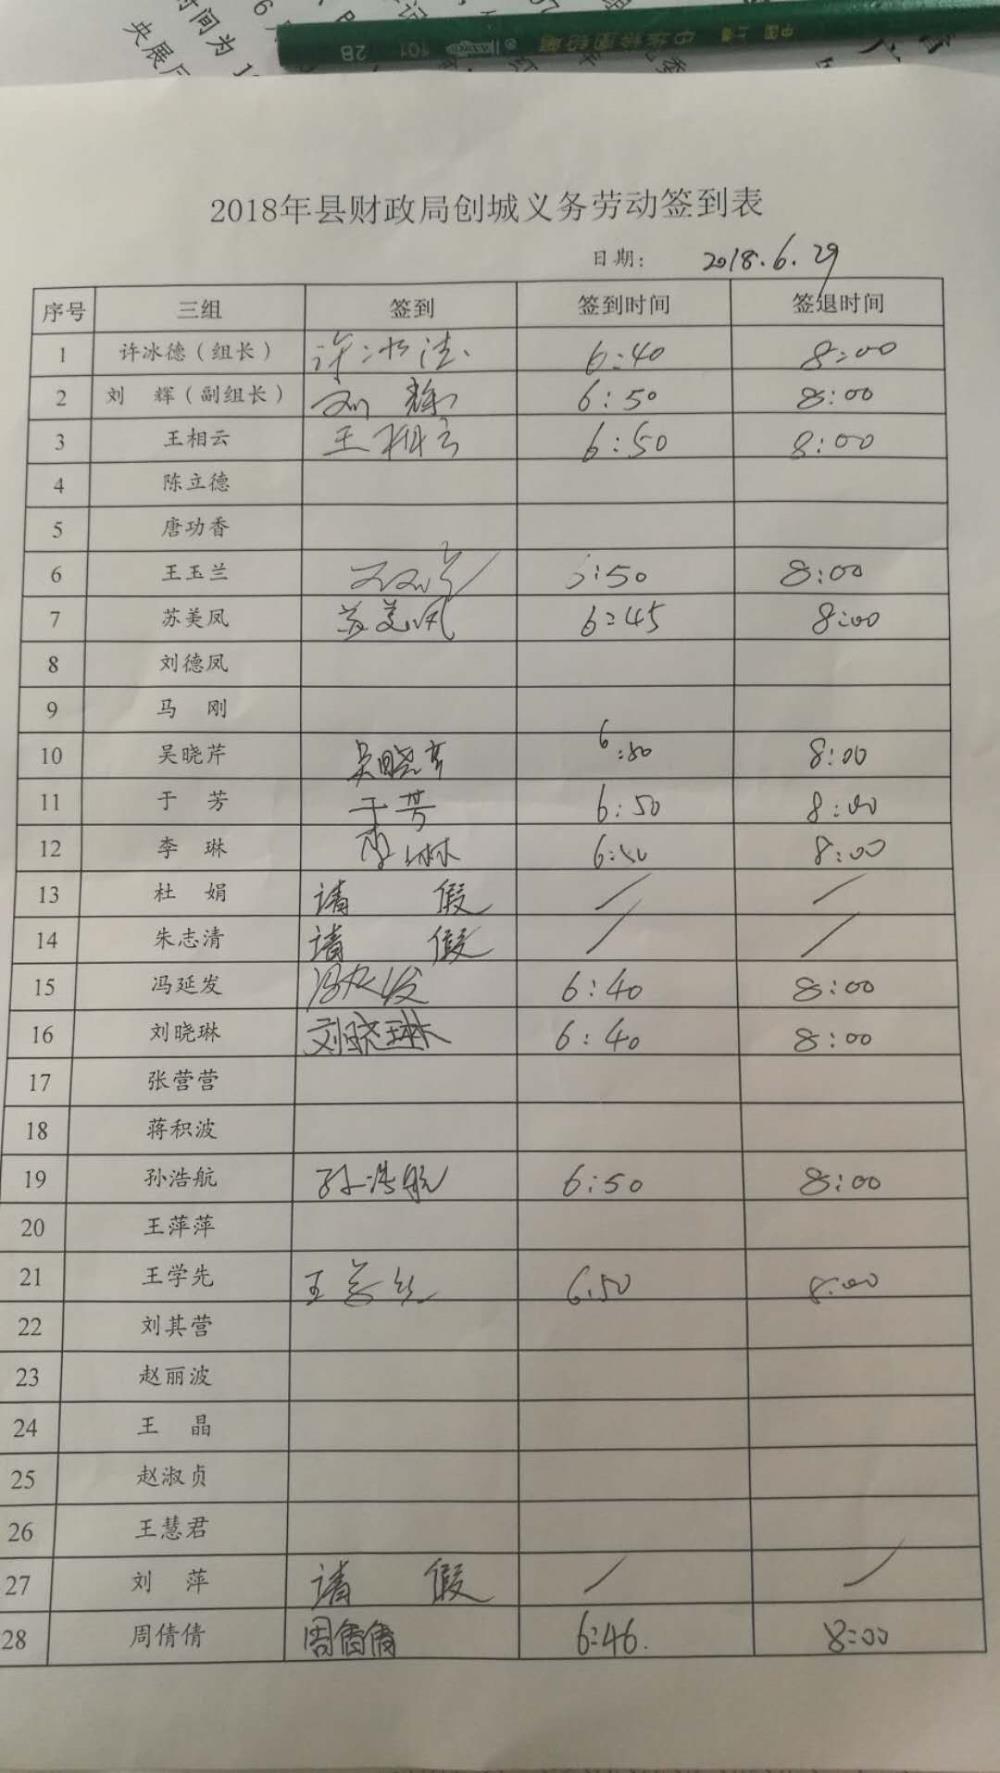 时间为
央展厅
中国 上海
中华绘图铅笔
101
2B
2018年县财政局创城义务劳动签到表
日期： 2018.6.29
序号 三组 签到 签到时间 签退时间
1 许冰德（组长） 许冰德 6:40 8:00
2 刘 辉（副组长） 刘辉 6:50 8:00
3 王相云 王相云 6:50 8:00
4 陈立德
5 唐功香
6 王玉兰 :50 8:00
7 苏美凤 苏美凤 6:45 8:00
8 刘德凤
9 马 刚
10 吴晓芹 吴晓芹 6:50 8:00
11 于 芳 于芳 6:50 8:00
12 李 琳 李琳 8:00
13 杜 娟 请 假 / /
14 朱志清 请 假 / /
15 冯延发 冯延发 6:40 8:00
16 刘晓琳 刘晓琳 6:40 8:00
17 张营营
18 蒋积波
19 孙浩航 孙浩航 6:50 8:00
20 王萍萍
21 王学先 王学先 6:50 8:00
22 刘其营
23 赵丽波
24 王 晶
25 赵淑贞
26 王慧君
27 刘 萍 请 假 / /
28 周倩倩 周倩倩 6:46. 8:00